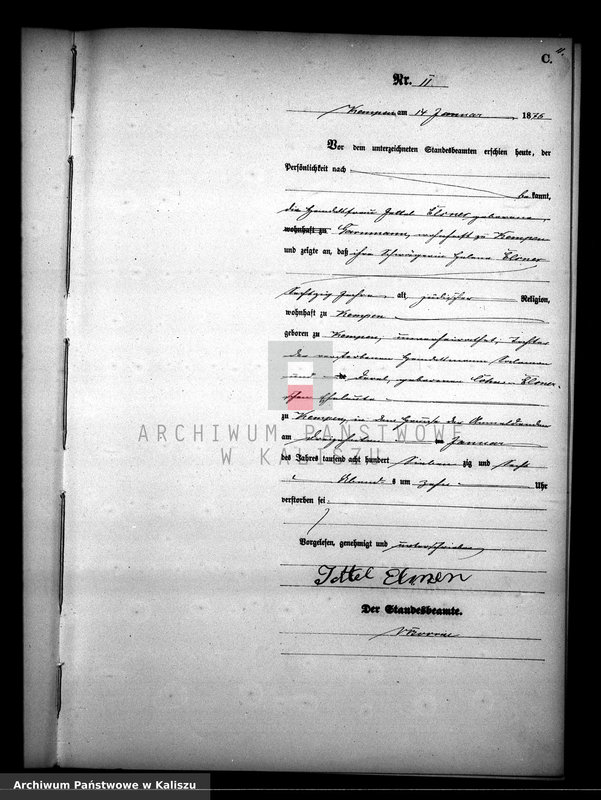 C.
Nr. 11
Kempen am 14 Januar 1876
Vor dem unterzeichneten Standesbeamten erschien heute, der
Persönlichkeit nach
bekannt,
die Handelsfrau Jettel Elsner geborene
wohnhaft zu Kempen
und zeigte an, daß ihre Schwägerin Elsner
Sechszig Jahre, alt, jüdischer Religion,
wohnhaft zu Kempen
geboren zu Kempen, unverheirathet, Tochter
des verstorbenen Handelsmann
und geborenen Cohn - Elsner-
schen Eheleute
zu Kempen, in dem Hause der Anmeldenden
am Dreizehnten Januar
des Jahres tausend acht hundert Sieben zig und Sechs
Abends um zehn Uhr
verstorben sei.
Vorgelesen, genehmigt und unterschrieben
Jettel Elsner
Der Standesbeamte.
ARCHIWUM PAŃSTWOWE
W KALISZU
Archiwum Państwowe w Kaliszu